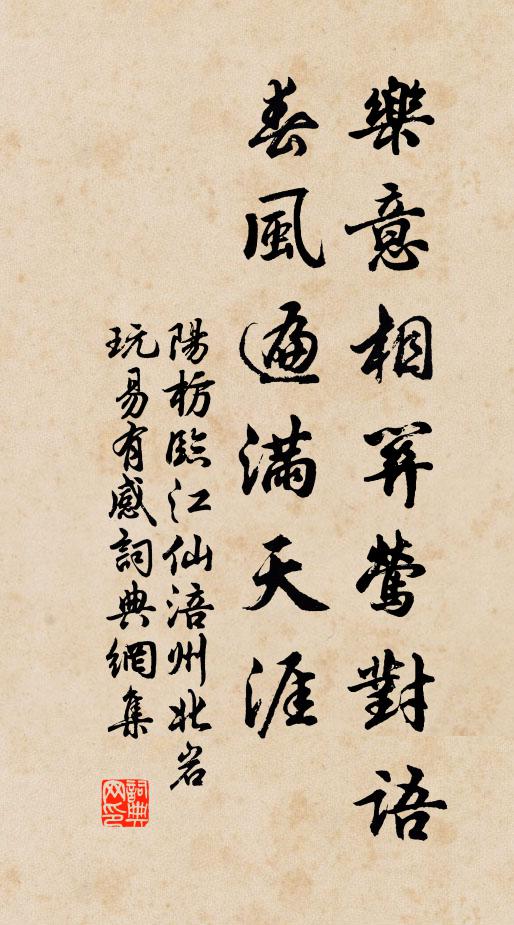 樂意相關鶯對語
春風遍滿天涯
陽枋臨江仙涪州北岩
玩易有感詞典網集
詞典网印